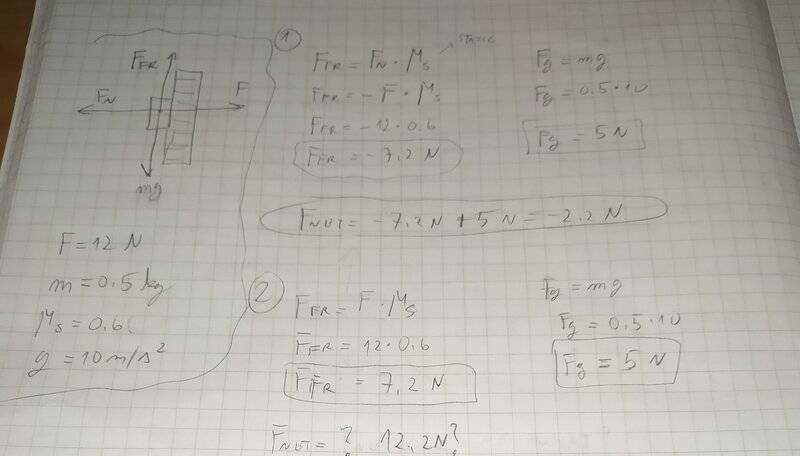 F_FR
F_N
F
mg
F = 12 N
m = 0.5 kg
μ_s = 0.6
g = 10 m/s²
1
F_FR = F_N · μ_s
STATIC
F_FR = - F · μ_s
F_FR = - 12 · 0.6
F_FR = - 7.2 N
F_g = mg
F_g = 0.5 · 10
F_g = 5 N
F_NET = - 7.2 N + 5 N = - 2.2 N
2
F_FR = F · μ_s
F_FR = 12 · 0.6
F_FR = 7,2 N
F_g = mg
F_g = 0.5 · 10
F_g = 5 N
F_NET = ? 12.2N?